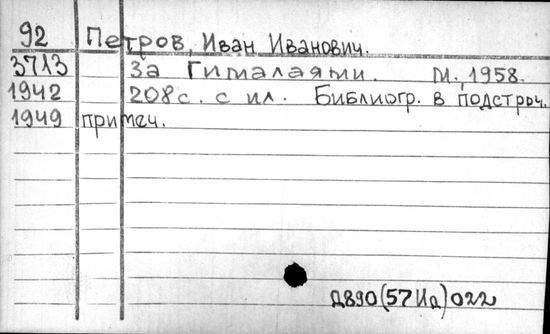 92 Петров, Иван Иванович.
3713 За Гималаями. М. 1958.
1942 208 с. с ил. Библиогр. в подстроч.
1949 примеч.
Д890(57Ид)022